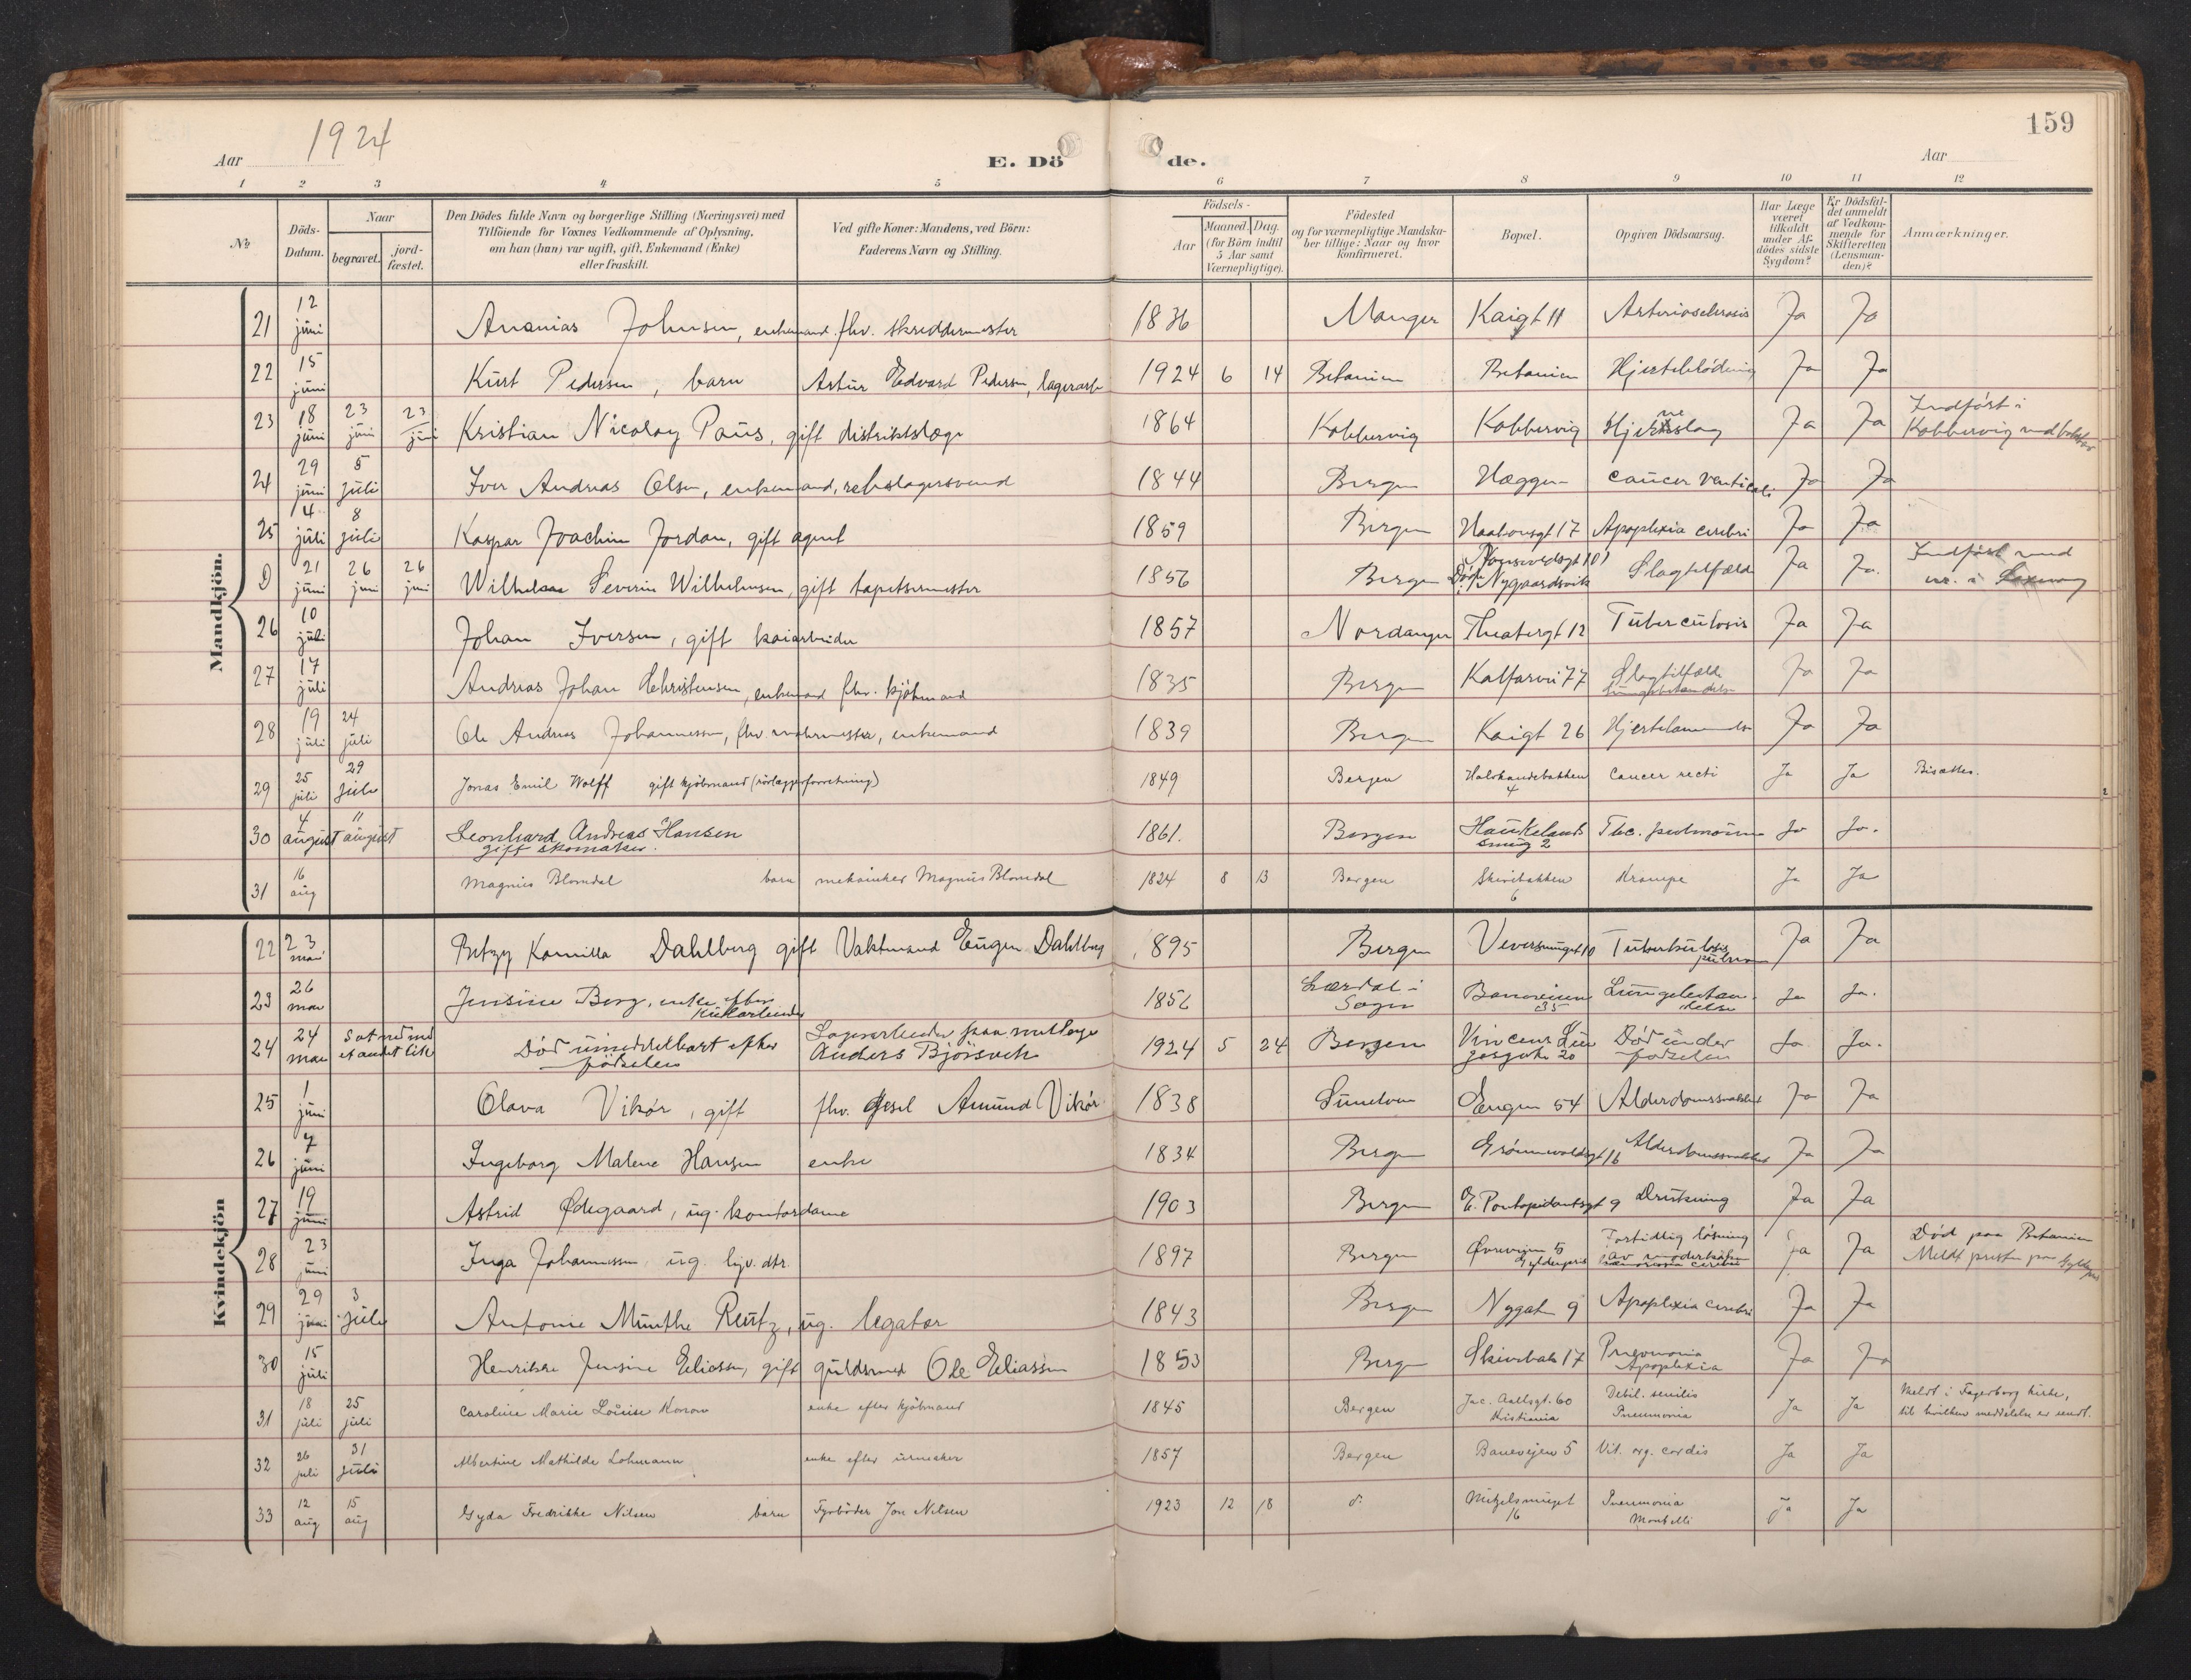 159
Aar 1924
E. Döde.
Aar
1 2 3 4 5 6 7 8 9 10 11 12
No
Döds-Datum.
Naar begravet. jord-fæstet.
Den Dödes fulde Navn og borgerlige Stilling (Næringsvei) med Tilföiende for Voxnes Vedkommende af Oplysning, om han (hun) var ugift, gift, Enkemand (Enke) eller fraskilt.
Ved gifte Koner: Mandens, ved Börn: Faderens Navn og Stilling.
Födsels- Aar Maaned. Dag. (for Börn indtil 5 Aar samt Værnepligtige).
Födested og for værnepligtige Mandskaber tillige: Naar og hvor konfirmeret.
Bopæl.
Opgiven Dödsaarsag.
Har Læge været tilkaldt under Afdödes sidste Sygdom?
Er Dödsfaldet anmeldt af Vedkommende for Skifteretten (Lensmanden)?
Anmærkninger.
Mandkjön.
21 12 juni Ananias Johnsen, enkemand. fhv. skreddermester 1836 Manger Kaigt 11 Arteriosclerosis Ja Ja
22 15 juni Kurt Pedersen, barn Artur Edvard Pedersen, lagerarb 1924 6 14 Betanien Betanien Hjerteblödning Ja Ja
23 18 juni 23 juni 23 juni Kristian Nicolay Paus, gift distriktslæge 1864 Kobbervig Kobbervig Hjerneslag Ja Ja Indført i Kobbervig
24 29 juni 5 juli Iver Andreas Olsen, enkemand, rebslagersvend 1844 Bergen Hæggen Cancer ventriculi Ja Ja
25 4 juli 8 juli Kaspar Joachim Jordan, gift agent 1859 Bergen Haakonsgt 17 Apoplexia cerebri Ja Ja
0 21 juni 26 juni 26 juni Severin Wilhelmsen, gift tapetsermester 1856 Bergen Død i Nygaardsvik Slagtilfælde Ja Ja. Indført med nr. i
26 10 juli Johan Iversen, gift kaiarbeider 1857 Nordanger Theatergt 12 Tuberculosis Ja Ja
27 17 juli Andreas Johan Christensen, enkemand fhv. kjøbmand 1835 Bergen Kalfarvei 77 Slagtilfælde Ja Ja
28 19 juli 24 juli Ole Andreas Johannessen, fhv. malermester, enkemand 1839 Bergen Kaigt 26 Hjertelammelse Ja Ja
29 25 juli 29 juli Jonas Emil Wolff gift kjöbmand (rörlæggerforretning) 1849 Bergen Halvkandebakken 4 Cancer recti Ja Ja Bisættes.
30 4 august 11 august Leonhard Andreas Hansen gift skomaker. 1861. Bergen Haukelands smug 2 Tbc. pulmonum Ja Ja.
31 16 aug Magnus Blomdal barn mekaniker Magnus Blomdal 1824 8 13 Bergen Skivebakken 6 Krampe Ja Ja
Kvindekjön
22 23 mai Betzy Kamilla Dahlberg gift Vaktmand Eugen Dahlberg 1895 Bergen Veversmuget 10 Tuberkulosis pulm Ja Ja
23 26 mai Jensine Berg, enke efter 1856 Lærdal i Sogn Baneveien 35 Lungebetændelse Ja Ja.
24 24 mai Sat ned med et andet lik Död umiddelbart efter födselen Lagerarbeider Anders Bjørsvik 1924 5 24 Bergen Vincens Lunges gate 20 Död under födselen Ja Ja.
25 1 juni Olava Vikør, gift fhv. Amund Vikør 1838 Eugen 54 Alderdomssvakhet Ja Ja
26 7 juni Ingeborg Malene Hansen enke 1834 Bergen Grønnevoldsgt 16 Alderdomssvakhet Ja Ja
27 19 juni Astrid Ødegaard, ug. kontordame 1903 Bergen E. Pontopidansgt 9 Drukning Ja Ja
28 23 juni Inga Johannessen, ug. hjv. dtr. 1897 Bergen Øvreveien 5 Gyldenpris Fortidlig løsning av moderkaken Ja Ja Død paa Betanien Meldt presten paa
29 29 juni 3 juli Antonie Munthe Reutz, ug. legatar 1843 Bergen Nygaten 9 Apoplexia cerebri Ja Ja
30 15 juli Henrikke Jensine Eliassen, gift guldsmed Ole Eliassen 1853 Bergen Skivebak 17 Pneumonia Apoplexia Ja Ja
31 18 juli 25 juli Caroline Marie Louise Konow enke efter kjöbmand 1845 Bergen Jac. Aallsgt. 60 Kristiania Debil. senilis Pneumonia Ja Ja Meldt i Fagerborg kirke, til hvilken meddelelse er sendt.
32 26 juli 31 juli Albertine Mathilde Lohmann enke efter urmaker 1857 Bergen Banevejen 5 Vit. org. cordis Ja Ja
33 12 aug 15 aug Gyda Fredrikke Nilsen barn Fyrböder Jon Nilsen 1923 12 18 d: Nitzelsmuget 16 Pneumonia Morbilli Ja Ja